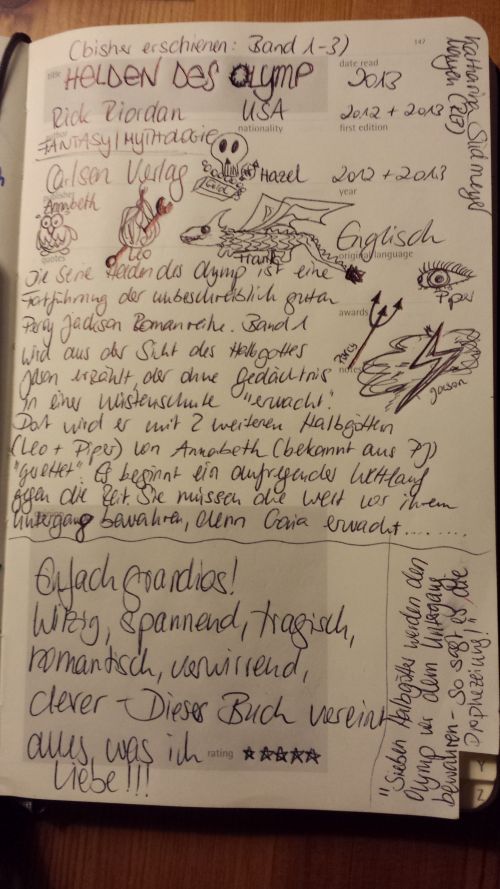 (bisher erschienen: Band 1-3)
147
title
HELDEN DES OLYMP
date read
2013
Rick Riordan
USA
2012 + 2013
author
nationality
first edition
FANTASY/MYTHOLOGIE
Carlsen Verlag
Gold
Hazel
2012 + 2013
year
Annabeth
Leo
Frank
Englisch
original language
quotes
Die Serie Helden des Olymp ist eine
Fortführung der unbeschreiblich guten
Percy Jackson Romanreihe. Band 1
wird aus der Sicht des Halbgottes
Jason erzählt, der ohne Gedächtnis
in einer Wüstenschule "erwacht".
Dort wird er mit 2 weiteren Halbgöttern
(Leo + Piper) von Annabeth (bekannt aus PJ)
"gerettet". Es beginnt ein aufregender Wettlauf
gegen die Zeit. Sie müssen die Welt vor ihrem
Untergang bewahren, denn Gaia erwacht.........
Piper
awards
Percy
notes
Jason
Einfach grandios!
Witzig, spannend, tragisch,
romantisch, verwirrend,
clever - Dieses Buch vereint
alles was ich
rating
liebe!!!
"Sieben Halbgötter werden den
Olymp vor dem Untergang
bewahren - So sagt es die
Prophezeiung!"
Katharina
Y
Z